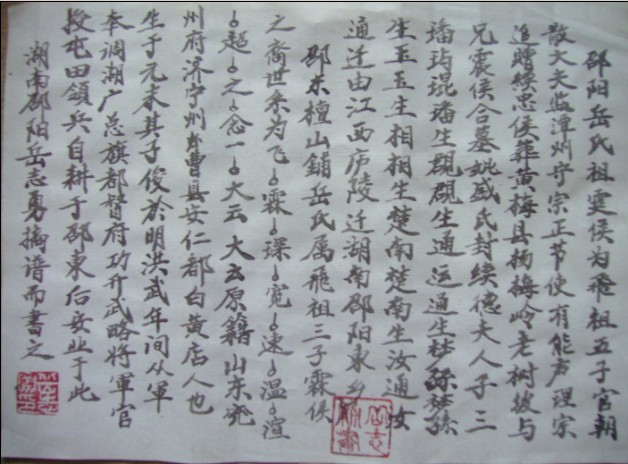 邵阳岳氏祖霆侯为飛祖五子官朝
散大夫监潭州守宗正节使有能声理宗
追赠续忠侯葬黄梅县杨梅岭老树坡与
兄震侯合墓妣盛氏封续德夫人子三
璠玙琨璠生覞覞生通运通生
生玉玉生相相生楚南楚南生汝通汝
通迁由江西庐陵迁湖南邵阳东乡
邵东檀山铺岳氏属飛祖三子霖侯
之裔世系为飞霖琛宽速温渲
超之念一大云大云原籍山东兖
州府济宁州曹县安仁都白黄店人也
生于元末其子俊於明洪武年间从軍
奉调湖广总旗都督府功升武略将軍官
授屯田领兵自耕于邵東后安业于此
湖南邵阳岳志勇摘谱而書之